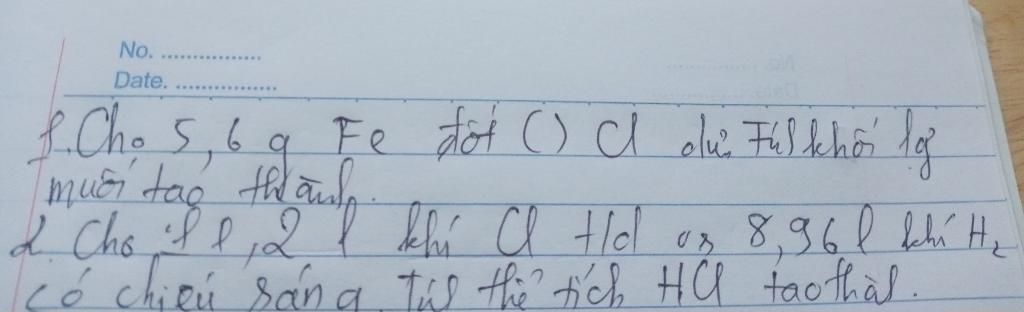 No. ................
Date. ................
1. Cho 5,6 g Fe đốt () Cl dư. Tính khối lg
muối tạo thành.
2. Cho 11,2 l khí Cl t/d vs 8,96 l khí H₂
có chiếu sáng. Tính thể tích HCl tạo thàh.